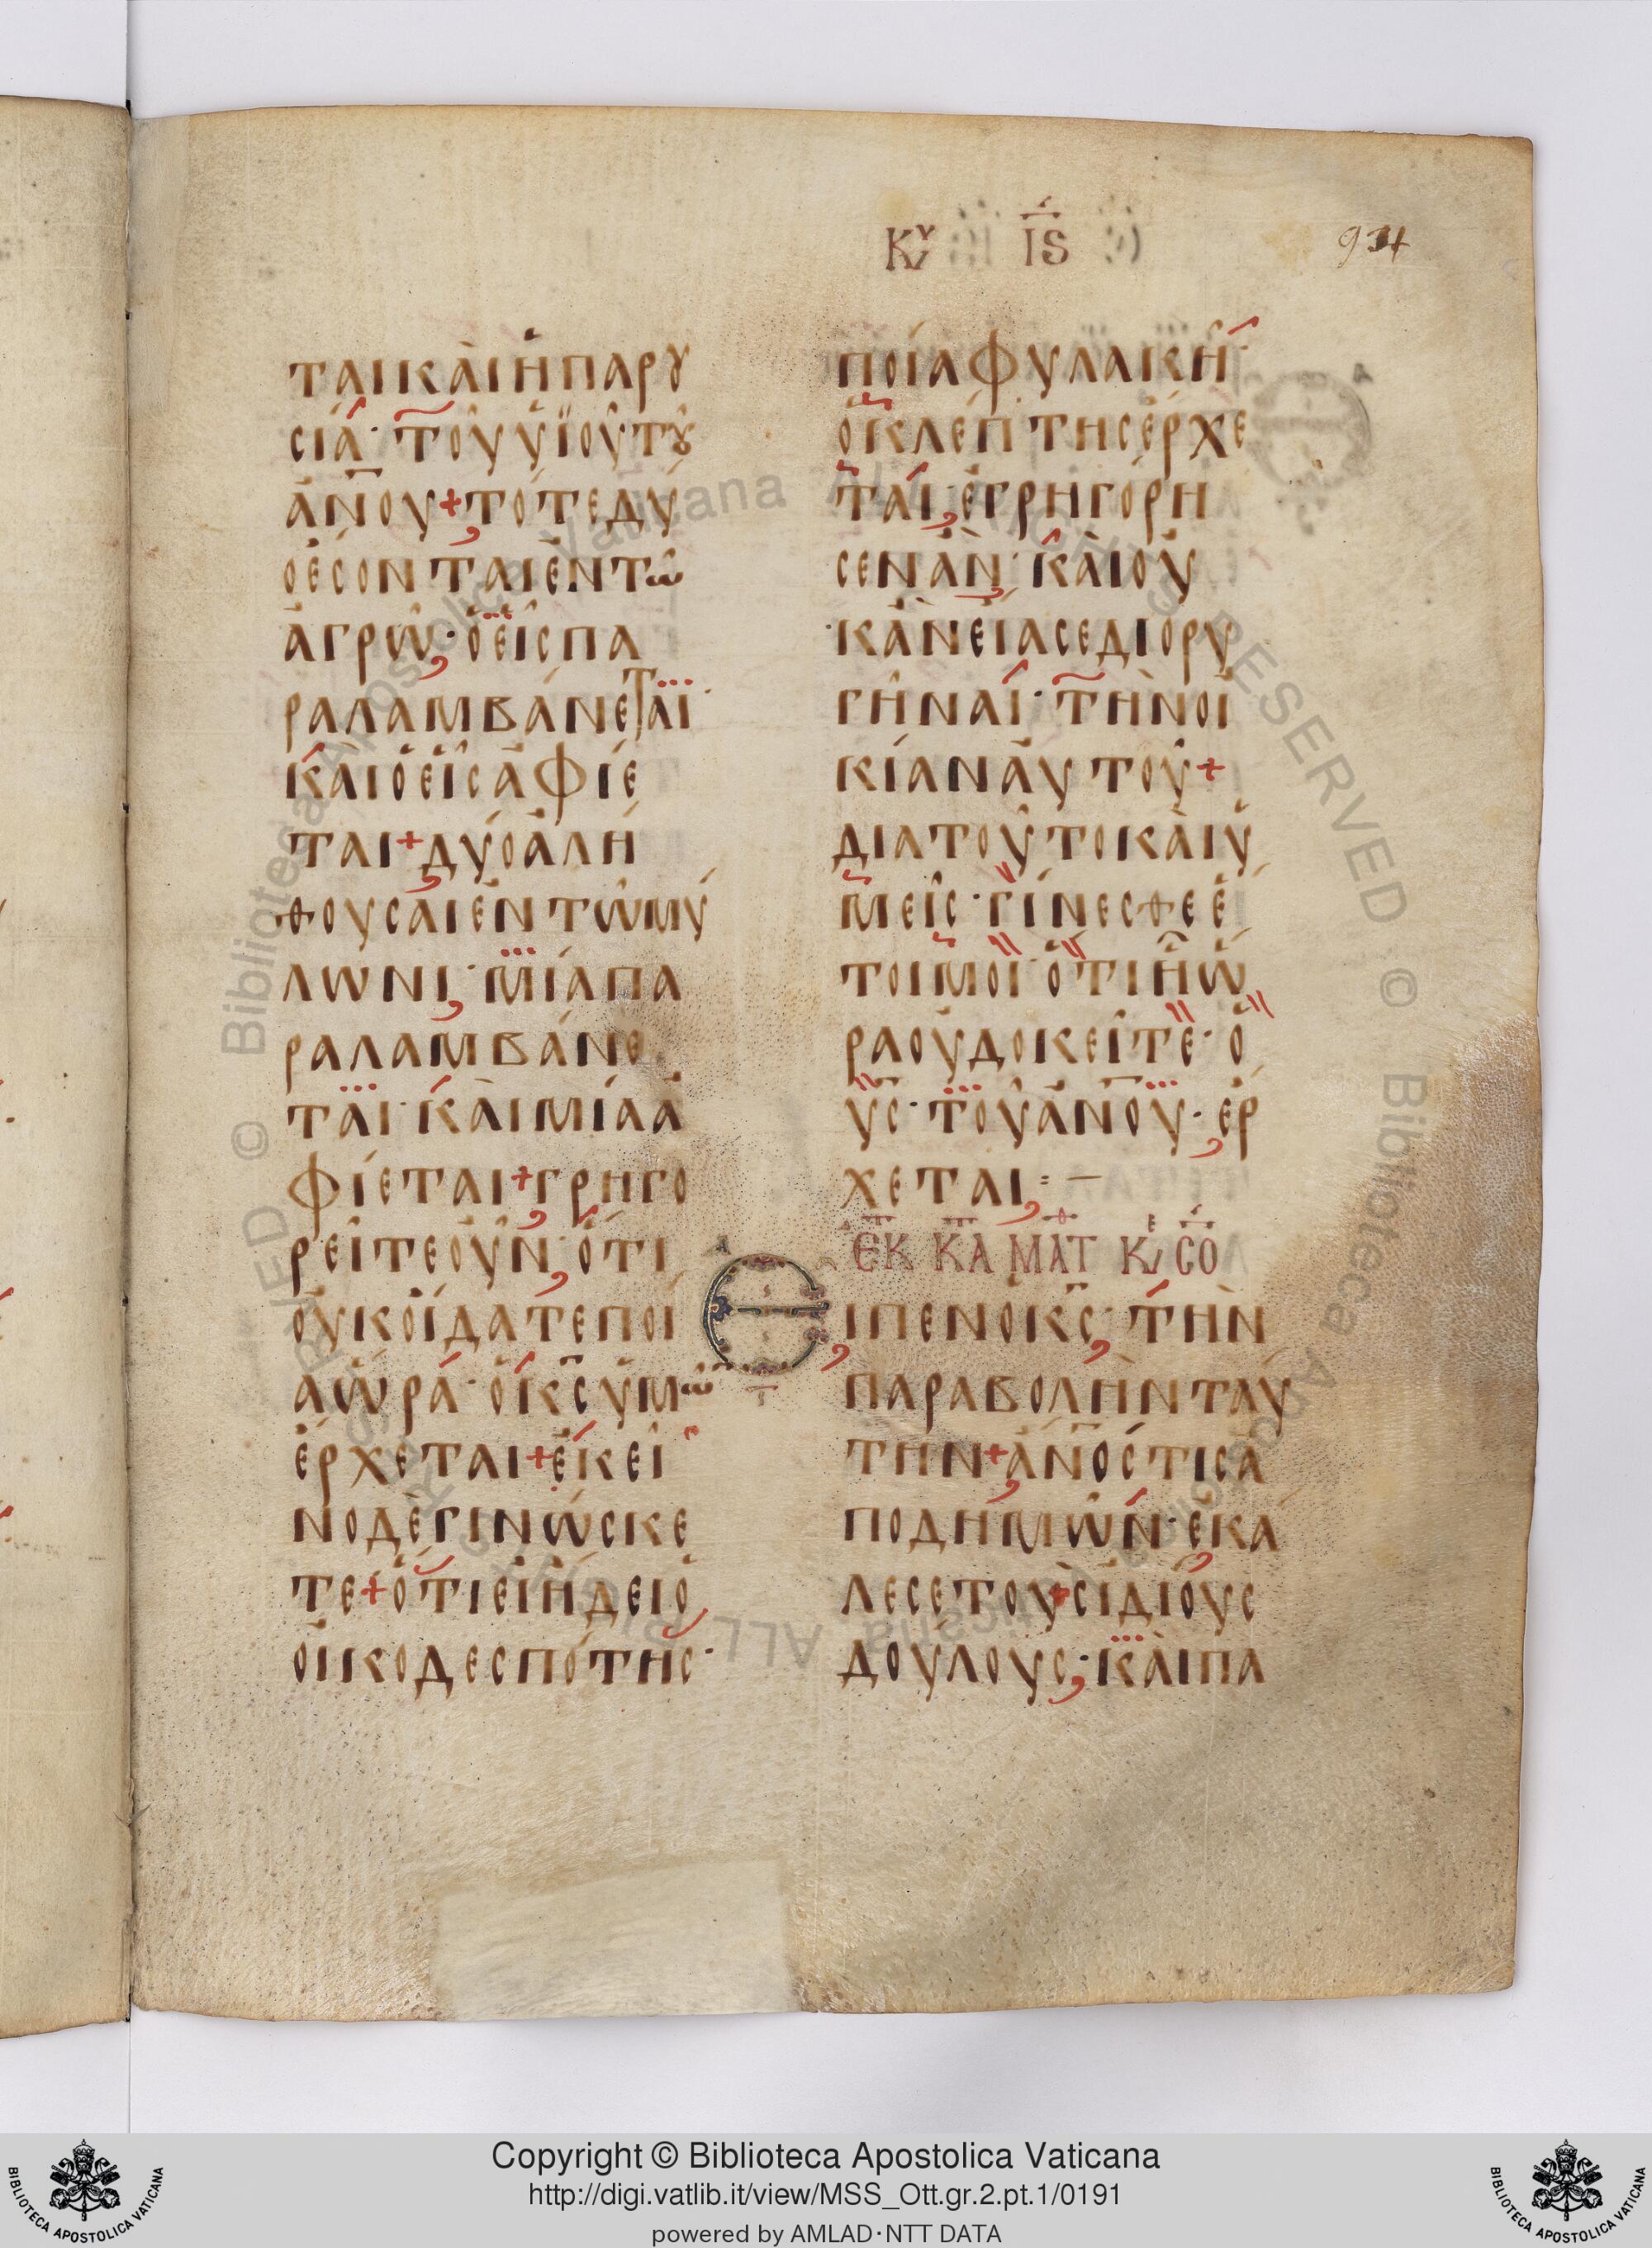 Κυ ΙϚ
934
ΤΑΙ ΚΑὶ Ἡ ΠΑΡȣ
ΣΙΑ· ΤΟΥ ΥΙΟΥ Τȣ
ΑΝΟΥ + ΤΟΤΕ ΔΥ
Ο ΕΣΟΝΤΑΙ ΕΝ Τω
ΑΓΡΩ· Ο ΕΙΣ ΠΑ
ΡΑΛΑΜΒΑΝΕΤΑΙ·
ΚΑΙ Ο ΕΙΣ ΑΦΙΕ
ΤΑΙ + ΔΥΟ ΑΛΗ
ΘΟΥΣΑΙ ΕΝ ΤΩ ΜΥ
ΛΩΝΙ· ΜΙΑ ΠΑ
ΡΑΛΑΜΒΑΝΕ
ΤΑΙ· ΚΑΙ ΜΙΑ Α
ΦΙΕΤΑΙ + ΓΡΗΓΟ
ΡΕΙΤΕ ΟΥΝ· ΟΤΙ
ΟΥΚ ΟΙΔΑΤΕ ΠΟΙ
Α ΩΡΑ· Ο ΚΣ ΥΜω
ΕΡΧΕΤΑΙ + ΕΚΕΙ
ΝΟ ΔΕ ΓΙΝΩΣΚΕ
ΤΕ + ΟΤΙ ΕΙ ΗΔΕΙ Ο
ΟΙΚΟΔΕΣΠΟΤΗΣ·
ΠΟΙΑ ΦΥΛΑΚΗ·
Ο ΚΛΕΠΤΗΣ ΕΡΧΕ
ΤΑΙ· ΕΓΡΗΓΟΡΗ
ΣΕΝ ΑΝ· ΚΑΙ ΟΥ
Κ ΑΝ ΕΙΑΣΕ ΔΙΟΡΥ
ΓΗΝΑΙ· ΤΗΝ ΟΙ
ΚΙΑΝ ΑΥΤΟΥ +
ΔΙΑ ΤΟΥΤΟ ΚΑΙ Υ
ΜΕΙΣ· ΓΙΝΕΣΘΕ Ε
ΤΟΙΜΟΙ· ΟΤΙ Η Ω
ΡΑ ΟΥ ΔΟΚΕΙΤΕ· Ο
ΥΣ· ΤΟΥ ΑΝΟΥ· ΕΡ
ΧΕΤΑΙ: –
ΕΚ ΚΑ ΜΑΤ Κε ΣΟ
ΕΙΠΕΝ Ο ΚΣ· ΤΗΝ
ΠΑΡΑΒΟΛΗΝ ΤΑΥ
ΤΗΝ + ΑΝΟΣ ΤΙΣ Α
ΠΟΔΗΜΩΝ· ΕΚΑ
ΛΕΣΕ ΤΟΥΣ ΙΔΙΟΥΣ
ΔΟΥΛΟΥΣ· ΚΑΙ ΠΑ
Copyright © Biblioteca Apostolica Vaticana
http://digi.vatlib.it/view/MSS_Ott.gr.2.pt.1/0191
powered by AMLAD·NTT DATA